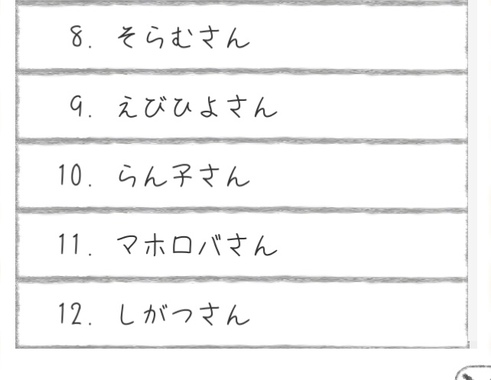 8. そらむさん
9. えびひよさん
10. らん子さん
11. マホロバさん
12. しがつさん